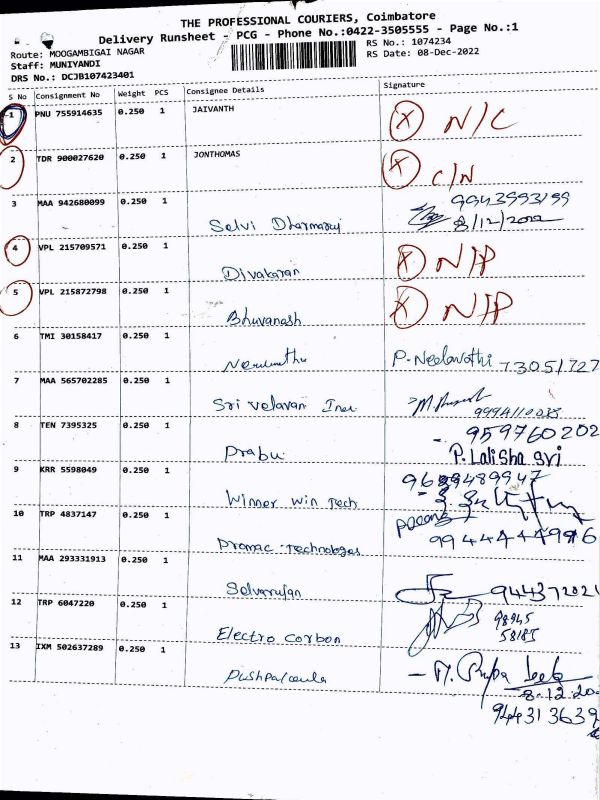 THE PROFESSIONAL COURIERS, Coimbatore
Delivery Runsheet - PCG - Phone No.:0422-3505555 - Page No.:1
Route: MOOGAMBIGAI NAGAR
RS No.: 1074234
Staff: MUNIYANDI
RS Date: 08-Dec-2022
DRS No.: DCJB107423401
S No Consignment No Weight PCS Consignee Details Signature
1 PNU 755914635 0.250 1 JAIVANTH (X) N/C
2 TDR 900027620 0.250 1 JONTHOMAS (X) C/N
3 MAA 942680099 0.250 1 Selvi Dharmaraj 9943993199
8/12/2022
4 VPL 215709571 0.250 1 Divakaran (X) N/P
5 VPL 215872798 0.250 1 Bhuvanash (X) N/P
6 TMI 30158417 0.250 1 P. Neelavathi 73051727
7 MAA 565702285 0.250 1 Sri velavan
8 TEN 7395325 0.250 1 Prabu 959760202
P. Lalisha sri
9 KRR 5598049 0.250 1 Winner Win Tech 9689489947
10 TRP 4837147 0.250 1 Promac Technologes
11 MAA 293331913 0.250 1 Selvarajan 944372021
12 TRP 6047220 0.250 1 Electro Corbon 98945
58185
13 IXM 502637289 0.250 1
8.12.20
944313639